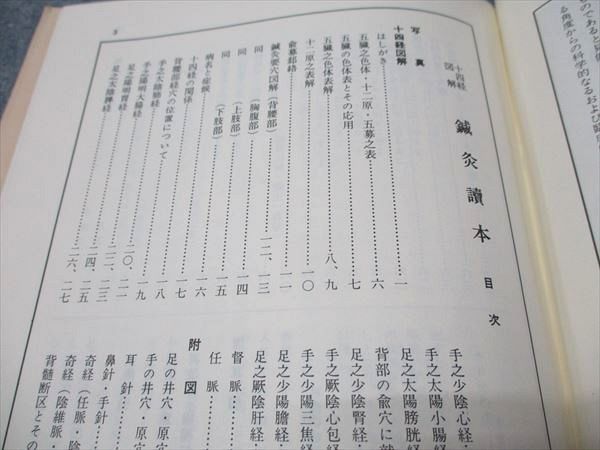 のであると同時
る角度からの科学的なるおよび臨
十四経
図解
鍼灸讀本
目次
写真
十四経図解
はしがき 一
五臓之色体・十二原・五募之表 六
五臓の色体表とその応用 七
五臓之色体表解 八、九
十二原之表解 一〇
兪募郄絡 一一
鍼灸要穴図解（背腰部） 一二、一三
同（胸腹部） 一四
同（上肢部） 一四
同（下肢部） 一五
病名と症候 一六
十四経の関係 一七
背腰部経穴の位置について 一八
手之太陰肺経 一九
手之陽明大腸経 二〇、二一
足之陽明胃経 二二、二三
足之太陰脾経 二四、二五
二六、二七
手之少陰心経
手之太陽小腸経
足之太陽膀胱経
背部の兪穴に就
足之少陰腎経
手之厥陰心包経
手之少陽三焦経
足之少陽膽経
足之厥陰肝経
督脈
任脈
附図
足の井穴・原穴
手の井穴・原穴
耳針
鼻針・手針
奇経（任脈・陰
奇経（陰維脈・
背髄断区とその
3